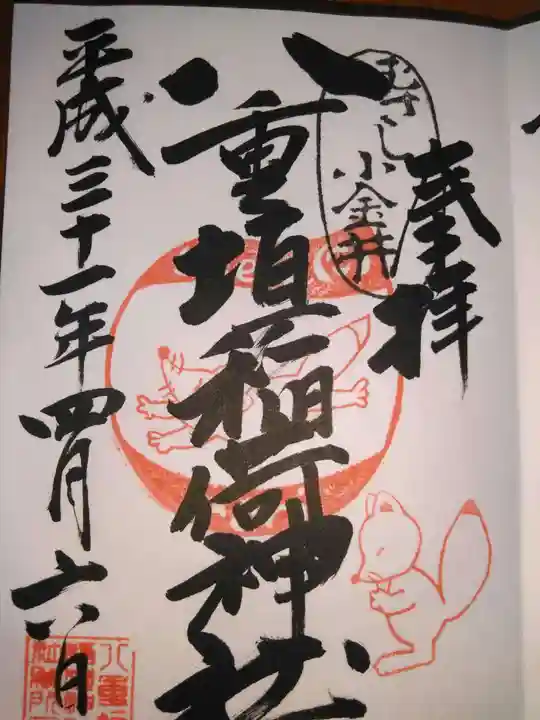 奉拝
むさし小金井
八重垣稲荷神社
平成三十一年四月六日